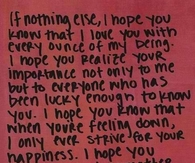 If nothing else, I hope you
know that I love you with
every ounce of my being.
I hope you realize your
importance not only to me
but to everyone who has
been lucky enough to know
you. I hope you know that
when you're feeling down,
I only ever strive for your
happiness. I hope you